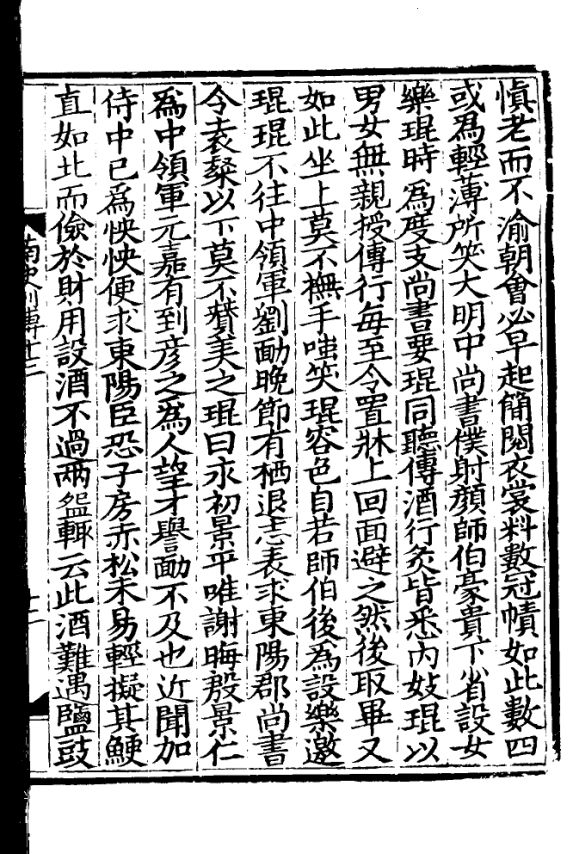 慎老而不渝朝會必早起簡閱衣裳料數冠幘如此數四
或爲輕薄所笑大明中尚書僕射顏師伯豪貴下省設女
樂琨時爲度支尚書要琨同聽傳酒行炙皆悉內妓琨以
男女無親授傳行每至令置牀上回面避之然後取畢又
如此坐上莫不撫手嗤笑琨容色自若師伯後爲設樂邀
琨琨不往中領軍劉勔晚節有栖退志表求東陽郡尚書
令袁粲以下莫不贊美之琨曰永初景平唯謝晦殷景仁
爲中領軍元嘉有到彦之爲人望才譽勔不及也近聞加
侍中已爲怏怏便求東陽臣恐子房赤松未易輕擬其鯁
直如此而儉於財用設酒不過兩盌輒云此酒難遇鹽豉
南史列傳十三
十二